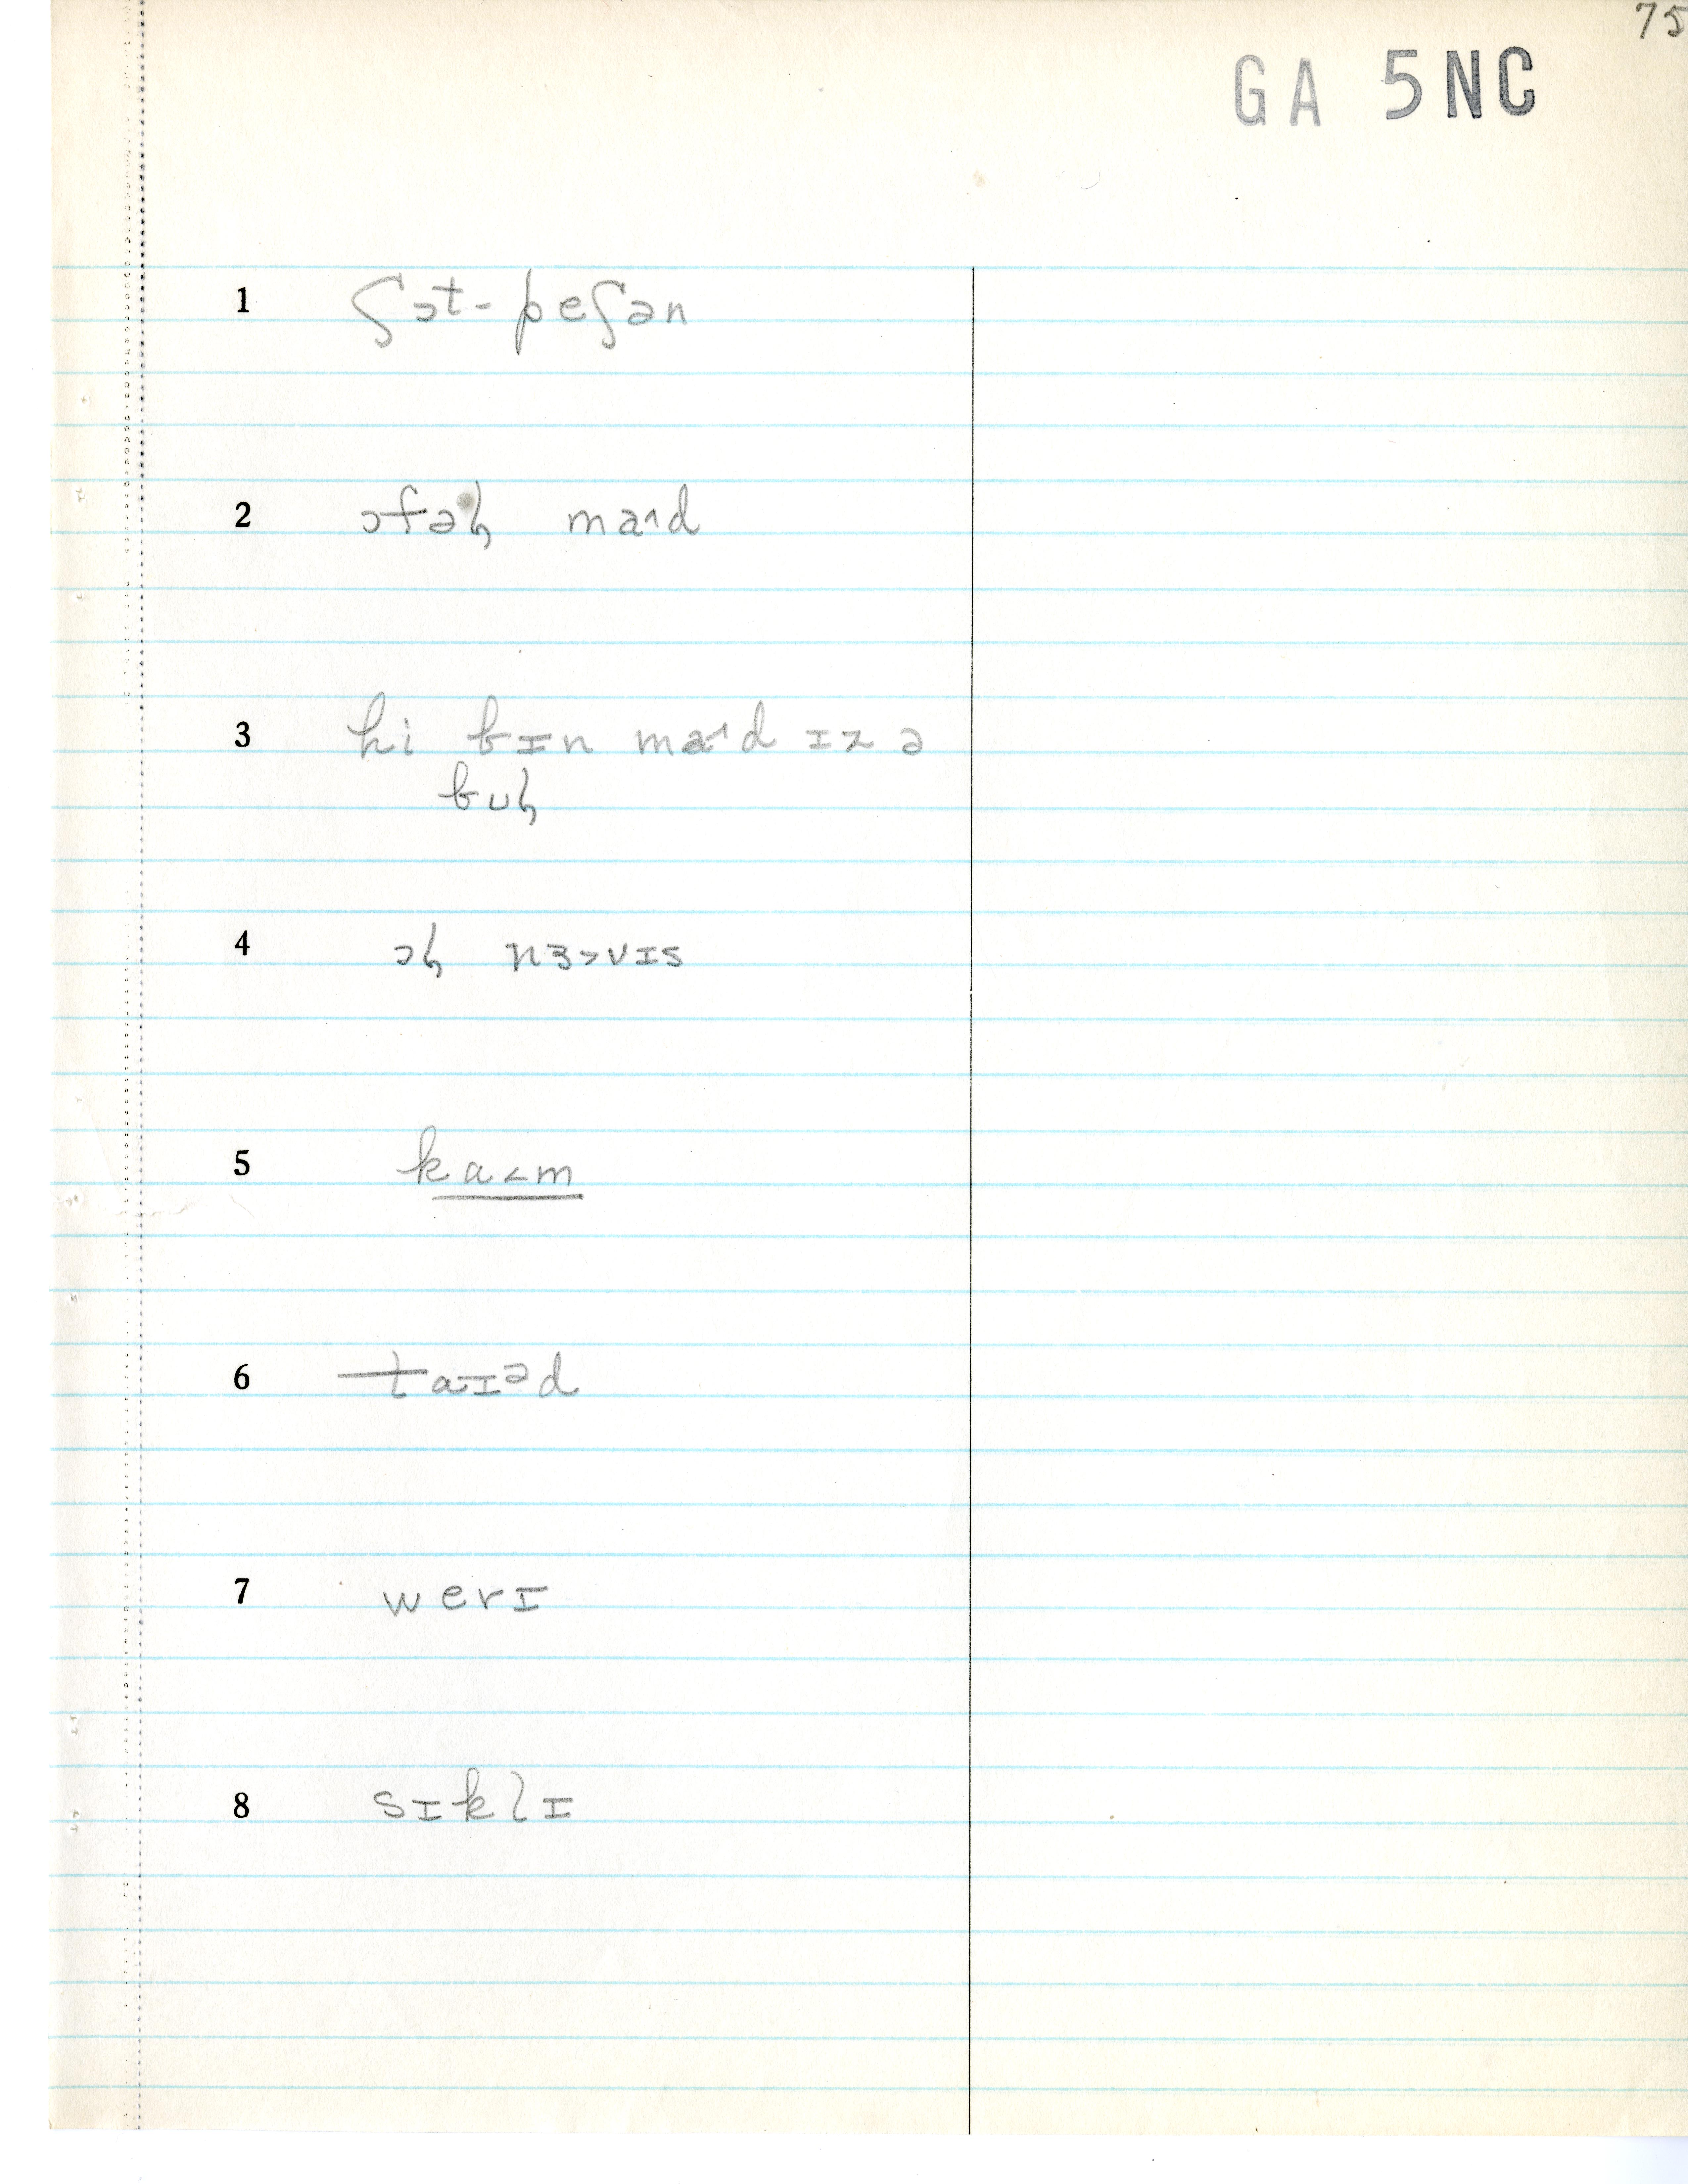 75
GA 5NC
1 ʃɔt-peʃən
2 ɔfəɫ maˑd
3 hi bɪn maˑd ɪz ə
bʊɫ
4 ɔɫ nɜ>vɪs
5 ka<m
6 taɪəd
7 werɪ
8 sɪklɪ